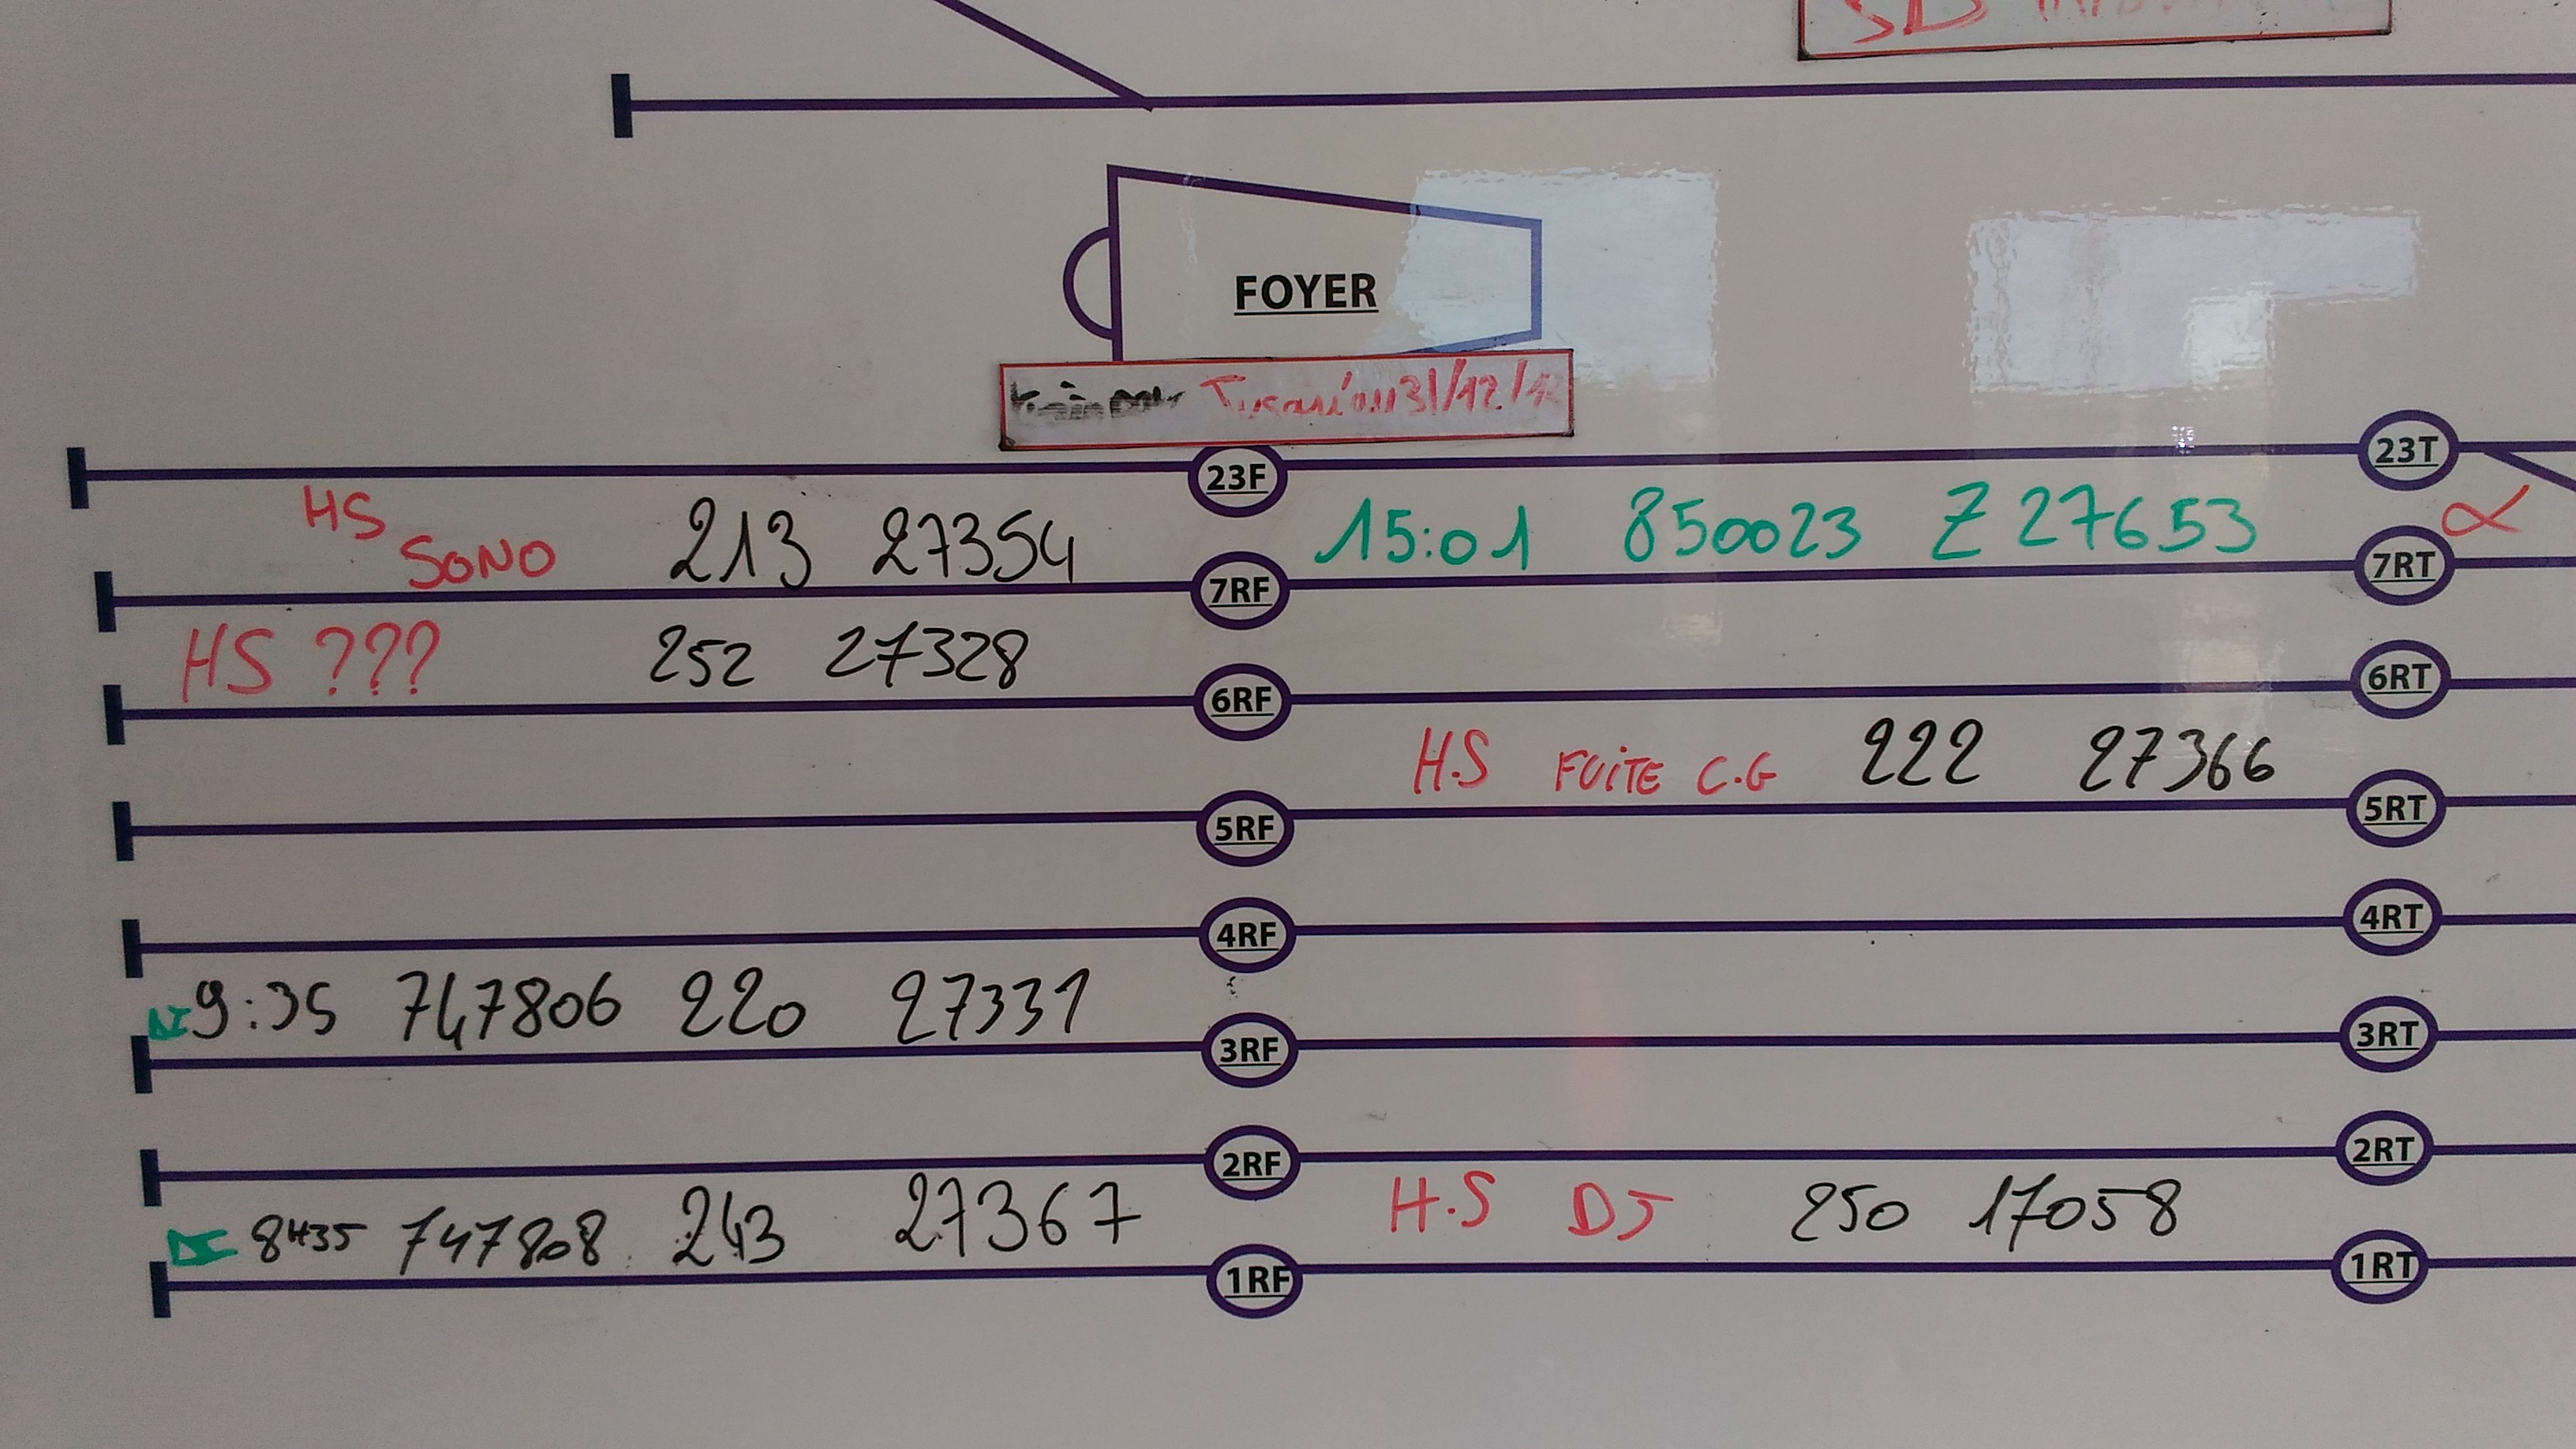 FOYER
Jusqu'au 31/12/1
23F 23T
HS SONO 213 27354 15:01 850023 Z 27653 α
7RF 7RT
HS ??? 252 27328
6RF 6RT
H.S FUITE C.G 222 27366
5RF 5RT
4RF 4RT
9:35 747806 220 27331
3RF 3RT
2RF 2RT
8H35 747808 243 27367 H.S DJ 250 17058
1RF 1RT